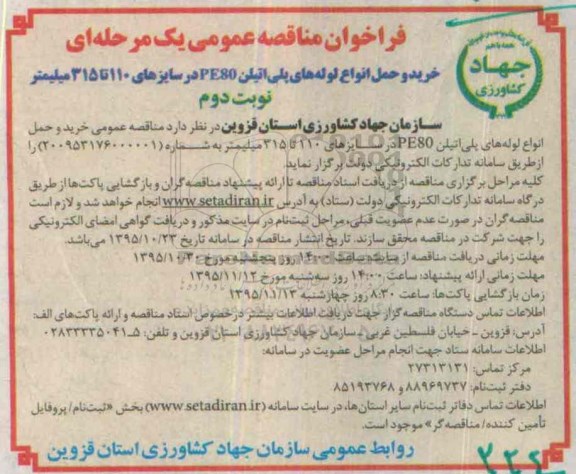 فراخوان مناقصه عمومی یک مرحله‌ای
خرید و حمل انواع لوله‌های پلی اتیلن PE80 در سایزهای ۱۱۰ تا ۳۱۵ میلیمتر
نوبت دوم
جهاد
کشاورزی
سازمان جهاد کشاورزی استان قزوین در نظر دارد مناقصه عمومی خرید و حمل
انواع لوله‌های پلی‌اتیلن PE80 در سایزهای ۱۱۰ تا ۳۱۵ میلیمتر به شماره (۲۰۰۹۵۳۱۷۶۰۰۰۰۰۱) را
از طریق سامانه تدارکات الکترونیکی دولت برگزار نماید.
کلیه مراحل برگزاری مناقصه از دریافت اسناد مناقصه تا ارائه پیشنهاد مناقصه‌گران و بازگشایی پاکت‌ها از طریق
درگاه سامانه تدارکات الکترونیکی دولت (ستاد) به آدرس www.setadiran.ir انجام خواهد شد و لازم است
مناقصه‌گران در صورت عدم عضویت قبلی، مراحل ثبت‌نام در سایت مذکور و دریافت گواهی امضای الکترونیکی
را جهت شرکت در مناقصه محقق سازند. تاریخ انتشار مناقصه در سامانه تاریخ ۱۳۹۵/۱۰/۲۳ می‌باشد.
مهلت زمانی دریافت مناقصه از سایت: ساعت ۱۴:۰۰ روز پنجشنبه مورخ ۱۳۹۵/۱۰/۳۰
مهلت زمانی ارائه پیشنهاد: ساعت ۱۴:۰۰ روز سه‌شنبه مورخ ۱۳۹۵/۱۱/۱۲
زمان بازگشایی پاکت‌ها: ساعت ۸:۳۰ روز چهارشنبه ۱۳۹۵/۱۱/۱۳
اطلاعات تماس دستگاه مناقصه گزار جهت دریافت اطلاعات بیشتر در خصوص اسناد مناقصه و ارائه پاکت‌های الف:
آدرس: قزوین - خیابان فلسطین غربی - سازمان جهاد کشاورزی استان قزوین و تلفن: ۵-۰۲۸۳۳۳۳۵۰۴۱
اطلاعات سامانه ستاد جهت انجام مراحل عضویت در سامانه:
مرکز تماس: ۲۷۳۱۳۱۳۱
دفتر ثبت‌نام: ۸۸۹۶۹۷۳۷ و ۸۵۱۹۳۷۶۸
اطلاعات تماس دفاتر ثبت‌نام سایر استان‌ها، در سایت سامانه (www.setadiran.ir) بخش «ثبت‌نام/پروفایل
تأمین کننده/مناقصه‌گر» موجود است.
روابط عمومی سازمان جهاد کشاورزی استان قزوین